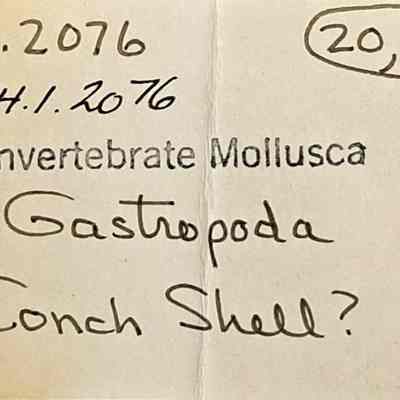 .2076 20,
4.1.2076
nvertebrate Mollusca
Gastropoda
Conch Shell?